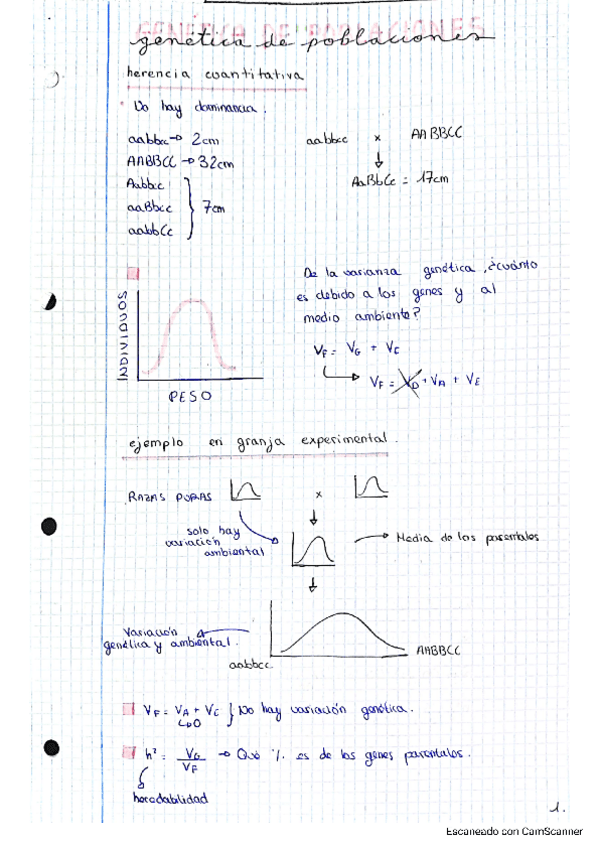 genética de poblaciones
herencia cuantitativa
No hay dominancia.
aabbcc → 2cm
AABBCC → 32cm
Aabbcc
aaBbcc
aabbCc
7cm
aabbcc x AABBCC
AaBbCc = 17cm
INDIVIDUOS
PESO
De la varianza genética, ¿cuánto
es debido a los genes y al
medio ambiente?
VF = VG + VE
VF = VD + VA + VE
ejemplo en granja experimental.
RAZAS PURAS x
solo hay
variación
ambiental
Media de los parentales
Variación
genética y ambiental.
aabbcc
AABBCC
VF = VA + VE } No hay variación genética.
↳0
h² = VG / VF → Qué % es de los genes parentales.
heredabilidad
1.
Escaneado con CamScanner